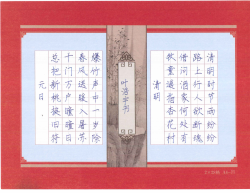 清明时节雨纷纷
路上行人欲断魂
借问酒家何处有
牧童遥指杏花村
清明
叶浩宇书
爆竹声中一岁除
春风送暖入屠苏
千门万户曈曈日
总把新桃换旧符
元日